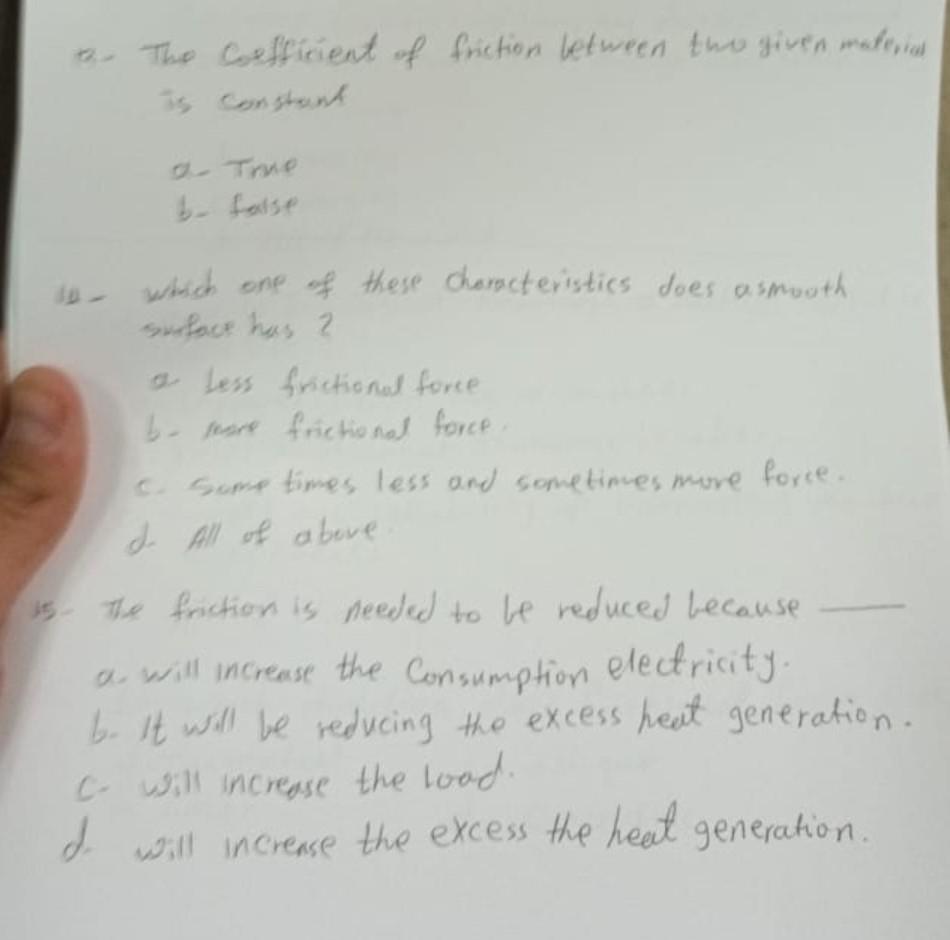 The Coefficient of friction between two given material
is Constant
a- True
b- false
10- which one of these characteristics does a smooth
surface has ?
a- Less frictional force
b- more frictional force.
c. Sometimes less and sometimes more force.
d- All of above
15- The friction is needed to be reduced because ———
a. will increase the Consumption electricity.
b- It will be reducing the excess heat generation.
c- will increase the load.
d- will increase the excess the heat generation.